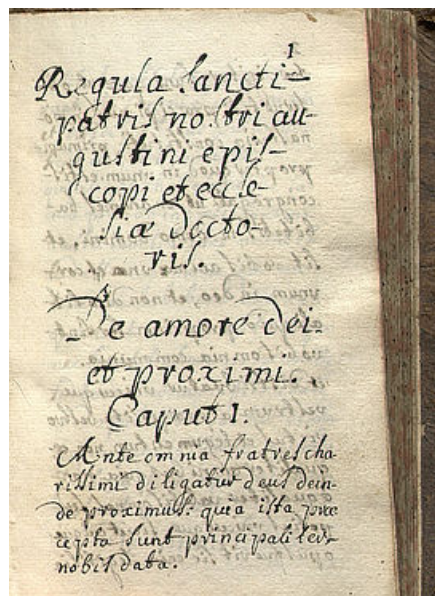 1
Regula Sancti
patris nostri au-
gustini epis-
copi et eccle-
siæ Docto-
ris.
De amore Dei.
et proximi.
Caput I.
Ante omnia fratres cha
rissimi diligatur deus dein
de proximus: quia ista præ
cepta sunt principaliter
nobis data.